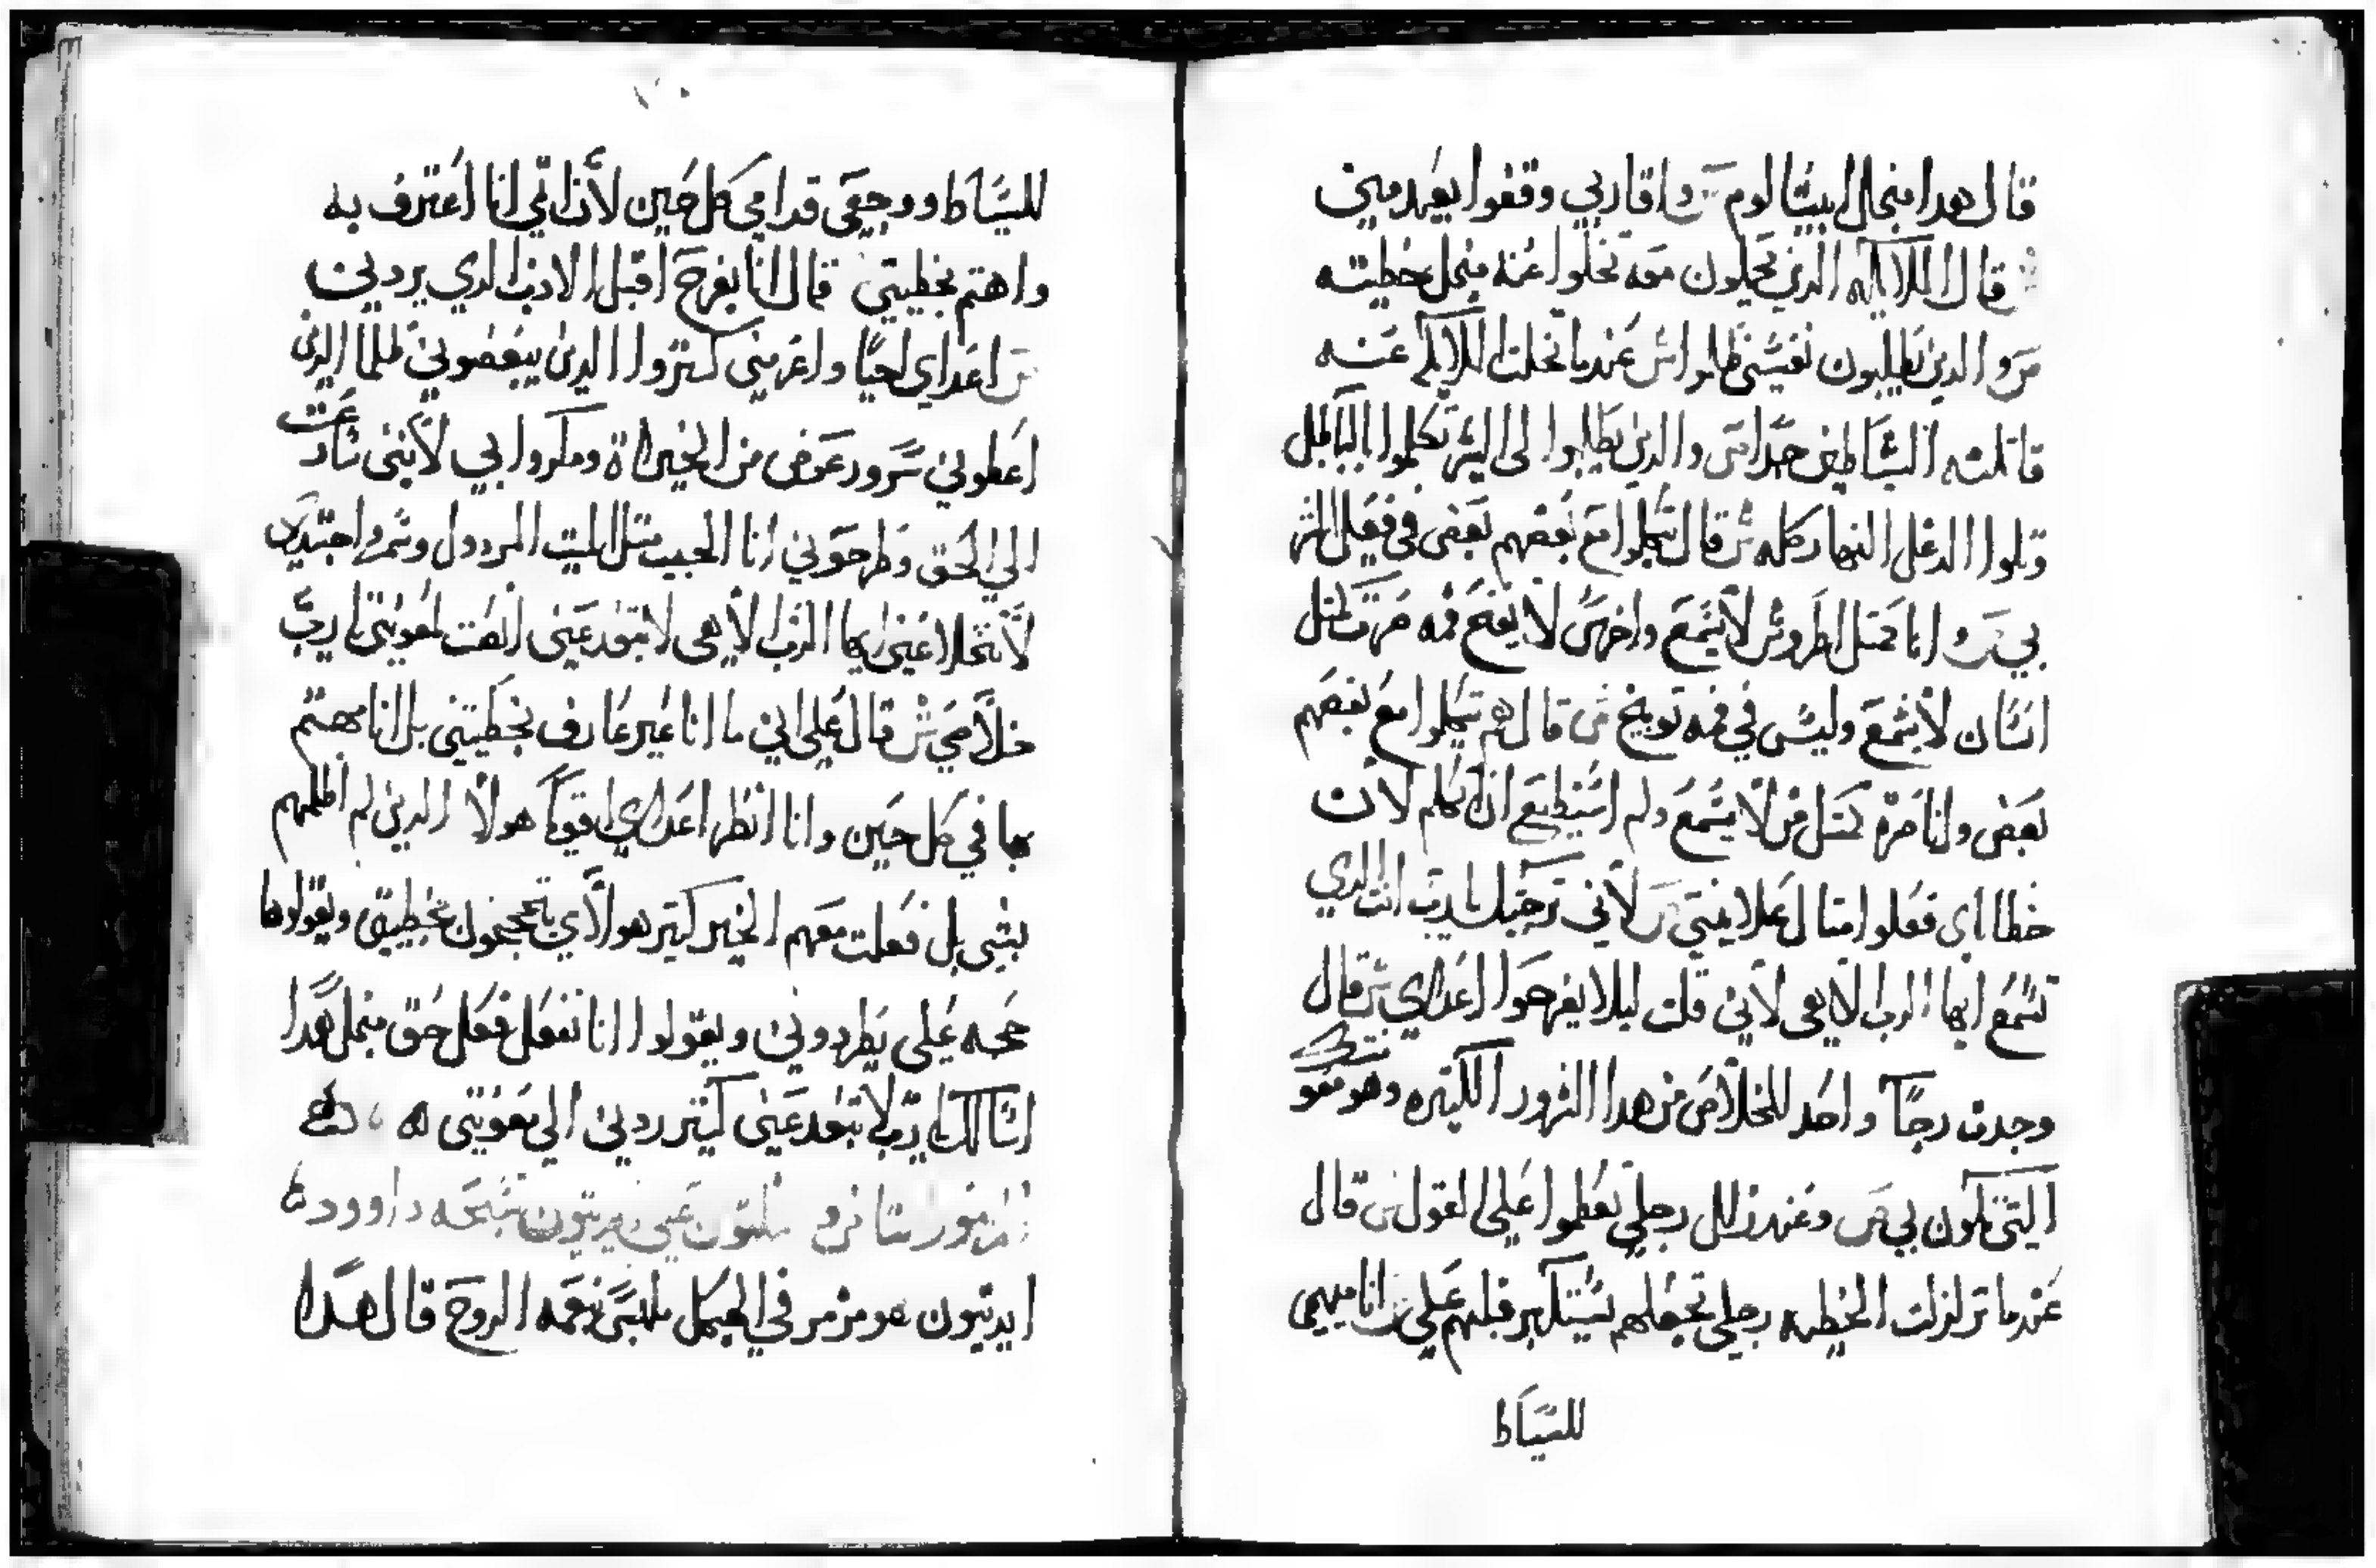 قال هدا منجل ابيشالوم واقاربي وقفوا بعيد مين
قال الملايكه الدين يحلون معه تخلوا عنه منجل خطيته
مز والدين يطلبون نفسي ظلموا ش عندما تخلت الملايكه عنه
قاتلته الشياطين جدا مز والدين يطلبوا لي الشر تكلموا بالباطل
وتلوا الدغل النهار كله ش قال تكلموا مع بعضهم بعض في فعل الشر
بي مز وانا كمتل اطروش لا يسمع واخرس لا يفتح فمه صرت كمتل
انسان لا يسمع وليس في فمه توبيخ ش قال هم تكلموا مع بعضهم
بعض وانا صرة كمتل من لا يسمع ولم استطيع ان اتكلم لان
خطااي فعلوا امتال علانيتي مز لاني ترجيتك يا رب انت الدي
تسمع ايها الرب الاهي لاني قلت ليلا يفرحوا اعداي ش قال
وجدت رجا واحد للخلاص من هدا الشرور الكتيره وهو معونتك
التي تكون بي مز وعند زلل رجلي تعظموا علي القول ش قال
عندما تزلزلت الخطيه رجلي تجعلهم تستكبر قلبهم علي مز انا مهيي
للسياط
للسياط ووجعي قدامي كل حين لان اتمي انا اعترف به
واهتم بخطيتي قال انا بفرح اقبل الادب الدي يردني
مز اعداي احيا واعز مني كتروا الدين يبغضوني ظلما الدين
اعطوني شرور عوض من الخيراة ومكروا بي لانني تبعت
الي الحق وطرحوني انا الحبيب متل الميت المردول وسمروا جسدي
لا تتخلا عني ايها الرب الاهي لا تبعد عني التفت لمعونتي يا رب
خلاصي ش قال علي اني ما انا غير عارف بخطيتي بل انا مهتم
بها في كل حين وانا انظر اعداي اقويا هولا الدين لم اظلمهم
بشي بل فعلت معهم الخير كتير هولاي يتحججون بخطيتي ويقولوها
حجه علي يطردوني ويقولوا انا نفعل فعل حق منجل هدا
اسالك يا رب لا تبعد عني كتير ردني الي معونتي
المزمور تسبحه داوود
ايديتون هو مزمر في الهيكل ملبس نعمه الروح قال هدا